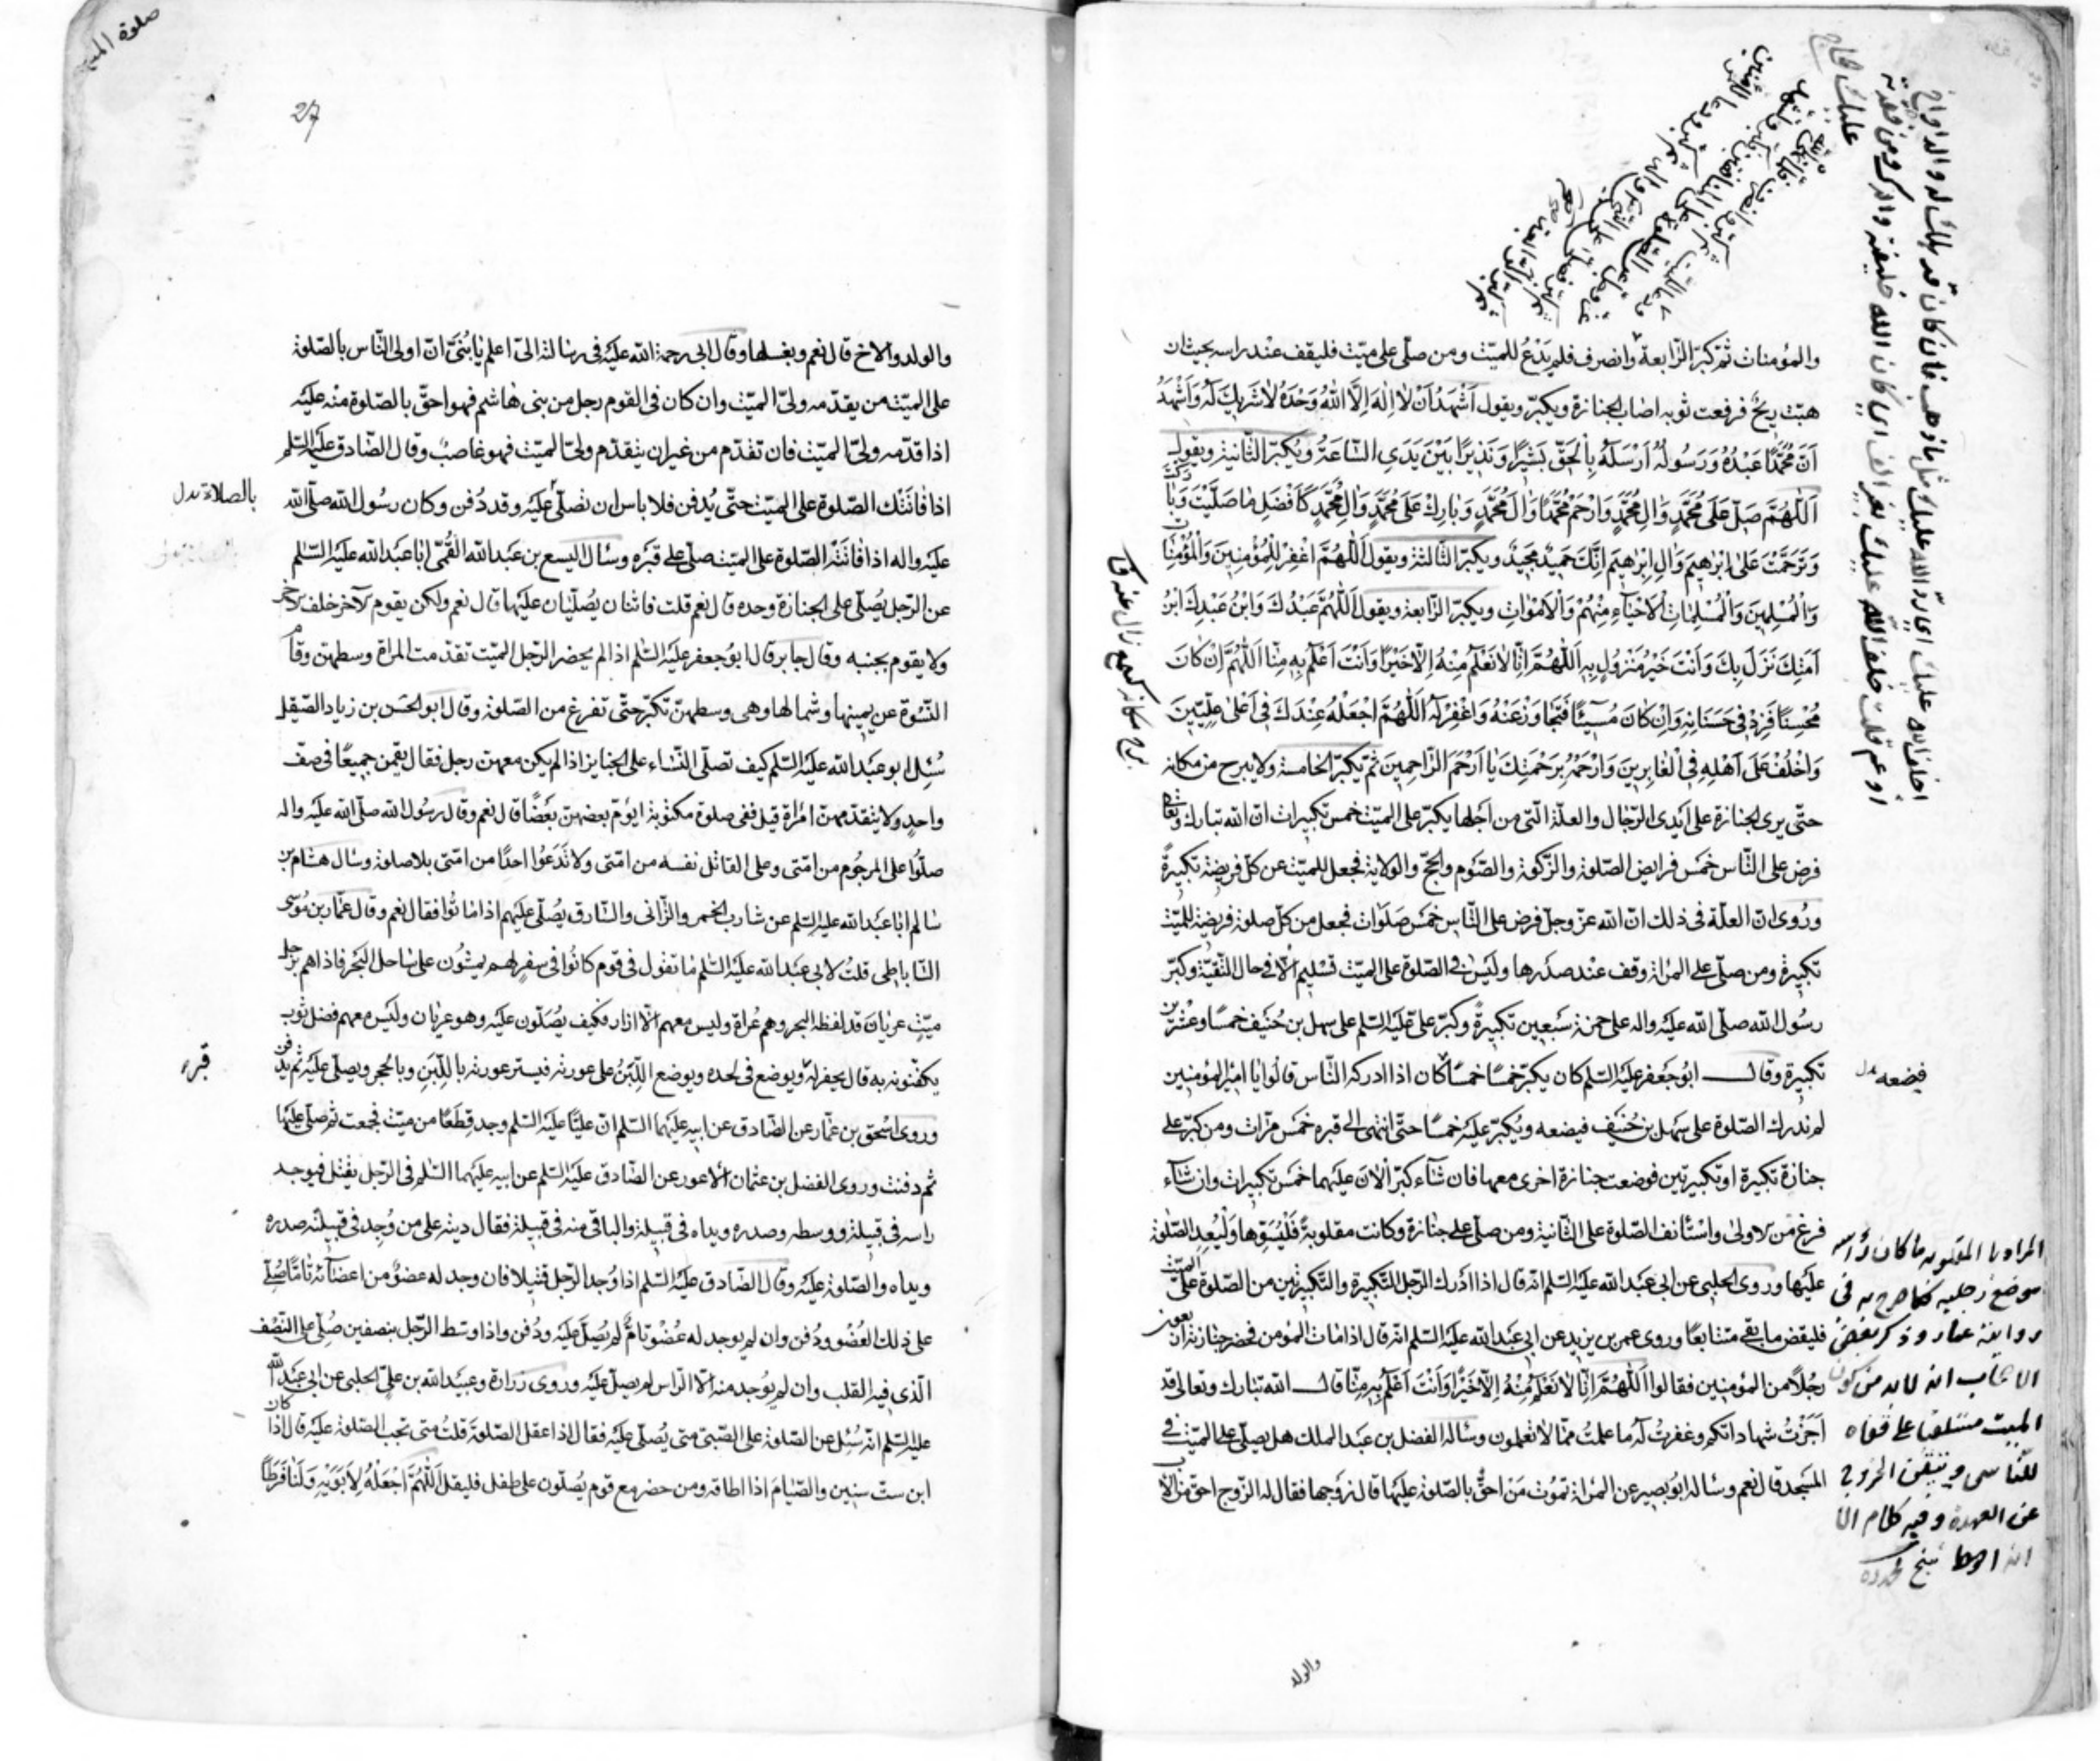 والمؤمنات ثمّ كبّر الرّابعة وانصرف فلم يَدْعُ للميّت ومن صلّى على ميّت فليقف عند راسه بحيث ان
هبّت ريحٌ فرفعت ثوبه اصاب الجنازة ويكبّر ويقول اَشْهَدُ اَنْ لا اِلٰهَ اِلَّا اللهُ وَحْدَهُ لا شَرِيكَ لَهُ وَاَشْهَدُ
اَنَّ مُحَمَّدًا عَبْدُهُ وَرَسُولُهُ اَرْسَلَهُ بِالْحَقِّ بَشِيرًا وَنَذِيرًا بَيْنَ يَدَيِ السَّاعَةِ ويُكبّر الثّانية ويقول
اَللّٰهُمَّ صَلِّ عَلٰى مُحَمَّدٍ وَاٰلِ مُحَمَّدٍ وَارْحَمْ مُحَمَّدًا وَاٰلَ مُحَمَّدٍ وَبَارِكْ عَلٰى مُحَمَّدٍ وَاٰلِ مُحَمَّدٍ كَاَفْضَلِ مَا صَلَّيْتَ وَبَارَكْتَ
وَتَرَحَّمْتَ عَلٰى اِبْرٰهِيمَ وَاٰلِ اِبْرٰهِيمَ اِنَّكَ حَمِيدٌ مَجِيدٌ ويكبّر الثّالثة ويقول اَللّٰهُمَّ اغْفِرْ لِلْمُؤْمِنِينَ وَالْمُؤْمِنَاتِ
وَالْمُسْلِمِينَ وَالْمُسْلِمَاتِ اَلْاَحْيَاءِ مِنْهُمْ وَالْاَمْوَاتِ ويكبّر الرّابعة ويقول اَللّٰهُمَّ عَبْدُكَ وَابْنُ عَبْدِكَ ابْنُ
اَمَتِكَ نَزَلَ بِكَ وَاَنْتَ خَيْرُ مَنْزُولٍ بِهِ اَللّٰهُمَّ اِنَّا لا نَعْلَمُ مِنْهُ اِلَّا خَيْرًا وَاَنْتَ اَعْلَمُ بِهِ مِنَّا اَللّٰهُمَّ اِنْ كَانَ
مُحْسِنًا فَزِدْ فِي حَسَنَاتِهِ وَاِنْ كَانَ مُسِيئًا فَتَجَاوَزْ عَنْهُ وَاغْفِرْ لَهُ اَللّٰهُمَّ اجْعَلْهُ عِنْدَكَ فِي اَعْلٰى عِلِّيِّينَ
وَاخْلُفْ عَلٰى اَهْلِهِ فِي الْغَابِرِينَ وَارْحَمْهُ بِرَحْمَتِكَ يَا اَرْحَمَ الرَّاحِمِينَ ثمّ يكبّر الخامسة ولا يبرح من مكانه
حتّى يرى الجنازة على اَيْدي الرّجال والعلّة الّتي من اَجْلها يكبّر على الميّت خمس تكبيرات انّ الله تبارك وتعالى
فرض على النّاس خَمْس فرايض الصّلوة والزّكوة والصّوم والحجّ والولاية فجعل للميّت عن كلّ فريضة تكبيرةً
ورُوي انّ العلّة في ذلك انّ الله عزّ وجلّ فرض على النّاس خمس صَلَوات فجعل من كلّ صلوة فريضة للميّت
تكبيرة ومن صلّى على المراة وقف عند صدرها وليس في الصّلوة على الميّت تسليم الّا في حال التّقيّة وكبّر
رسُول الله صلّى الله عليه واله على حمزة سَبعين تكبيرةً وكبّر علي عليه السّلم على سهل بن حُنَيف خمسًا وعشرين
تكبيرة وقال ابُو جَعفر عليه السّلم كان يكبّر خمسًا خمسًا كان اذا ادركه النّاس قالوا يا امير المؤمنين
لم ندرك الصّلوة على سهل بن حُنَيف فيضعه ويُكبّر عليه خمسًا حتّى انتهى الى قبره خمس مرّات ومن كبّر على
جنازة تكبيرة او تكبيرتين فوضعت جنازة اخرى معها فان شاء كبّر الان عليهما خمس تكبيرات وان شاء
فرغ من الاولى واسْتأنف الصّلوة على الثّانية ومن صلّى على جنازة وكانت مقلوبةً فَلْيُسَوِّها وَلْيُعِدِ الصّلوة
عليها وروى الحلبي عن ابي عبدالله عليه السّلم انّه قال اذا ادرك الرّجل التّكبيرة والتّكبيرتين من الصّلوة على الميّت
فليقض ما بقي متتابعًا وروى عمر بن يزيد عن ابي عبدالله عليه السّلم انّه قال اذا مات المؤمن فحضر جنازته اربعون
رجُلاً من المؤمنين فقالوا اَللّٰهُمَّ اِنَّا لا نَعْلَمُ مِنْهُ اِلَّا خَيْرًا وَاَنْتَ اَعْلَمُ بِهِ مِنَّا قال الله تبارك وتعالى قد
اَجَزْتُ شهاداتكم وغفرتُ له ما علمتُ ممّا لا تعلمون وساله الفضل بن عبد الملك هل يصلّى على الميّت في
المسجد قال نعم وساله ابُو بصير عن المراة تمُوت مَنْ احقُّ بالصّلوة عليها قال زوجها فقال له الزّوج احقّ من الاب
والولد
فيضعه بدل
المراد بالمقلوبة ما كان رأسه
موضع رجليه كما صرح به في
رواية عمار وذكر بعض
الاصحاب انه لابد من كون
الميت مستلقيا على قفاه
للتاسي وتيقن الخروج
عن العهدة وفيه كلام الا
انه احوط
صلوة الميت
27
والولد والاخ قال نعم ويغسلها وقال ابي رحمة الله عليه في رسالته اليّ اعلم يا بُنَيّ انّ اولى النّاس بالصّلوة
على الميّت من يقدّمه وليّ الميّت وان كان في القوم رجل من بني هاشم فهو احقّ بالصّلوة منه عليه
اذا قدّمه وليّ الميّت فان تقدّم من غير ان يتقدّم وليّ الميّت فهو غاصبٌ وقال الصّادق عليه السّلم
اذا فاتتك الصّلوة على الميّت حتّى يُدفن فلا باس ان تصلّي عليه وقد دُفن وكان رسُول الله صلّى الله
عليه واله اذا فاتته الصّلوة على الميّت صلّى على قبره وسال اليسع بن عبدالله القُمّي ابا عبدالله عليه السّلم
عن الرّجل يُصلّي على الجنازة وحده قال نعم قلت فاثنان يُصلّيان عليها قال نعم ولكن يقوم الآخر خلف الآخر
ولا يقوم بجنبه وقال جابر قال ابو جعفر عليه السّلم اذا لم يحضر الرّجل الميّت تقدّمت المراة وسطهنّ وقام
النّسْوة عن يمينها وشمالها وهي وسطهنّ تكبّر حتّى تفرغ من الصّلوة وقال ابو الحسن بن زياد الصّيقل
سُئِل ابو عبدالله عليه السّلم كيف تصلّي النّساء على الجنايز اذا لم يكن معهنّ رجل فقال يقمن جميعًا في صفّ
واحدٍ ولا يتقدّمهنّ امْراة قيل ففي صلوة مكتوبة ايؤمّ بعضهنّ بعضًا قال نعم وقال رسُول الله صلّى الله عليه واله
صلّوا على المرجُوم من امّتي وعلى القاتل نفسه من امّتي ولا تدَعُوا احدًا من امّتي بلا صلوة وسال هشام بن
سالم ابا عبدالله عليه السّلم عن شارب الخمر والزّاني والسّارق يُصلّى عليهم اذا ماتُوا فقال نعم وقال عمّار بن مُوسى
السّاباطي قلتُ لابي عبدالله عليه السّلم ما تقول في قوم كانُوا في سفرٍ لهم يمشُون على ساحل البحر فاذا هم برجل
ميّتٍ عريانٍ قد لفظه البحر وهم عُراة وليس معهم الّا ازار فكيف يُصَلّون عليه وهو عريان وليس معهم فضل ثوب
يكفّنونه به قال يحفر له ويوضع في لحده ويوضع اللّبَنُ على عورته فيستر عورته باللّبَنِ وبالحجر ويصلّى عليه ثم يدفن
وروى اسْحق بن عمّار عن الصّادق عن ابيه عليهما السّلم انّ عليًّا عليه السّلم وجد قِطَعًا من ميّت فجمعت ثم صلّى عليها
ثم دفنت وروى الفضل بن عثمان الاعور عن الصّادق عليه السّلم عن ابيه عليهما السّلم في الرّجل يقتل فيوجد
راسه في قبيلة ووسطه وصدره ويداه في قبيلة والباقي منه في قبيلة فقال ديته على من وُجد في قبيلته صدره
ويداه والصّلوة عليه وقال الصّادق عليه السّلم اذا وُجد الرّجل قتيلا فان وجد له عضوٌ من اعضآئه تامًّا صُلّي
على ذلك العُضْو ودُفن وان لم يوجد له عُضْوٌ تامٌّ لم يُصَلَّ عليه ودُفن واذا وسّط الرّجل بنصفين صُلّي على النّصْف
الّذي فيه القلب وان لم يوُجد منه الّا الرّاس لم يصلّ عليه وروى زرارة وعبيدالله بن علي الحلبي عن ابي عبدالله
عليه السّلم انّه سُئِل عن الصّلوة على الصّبيّ متى يُصلّى عليه فقال اذا عقل الصّلوة قلتُ متى تجب الصّلوة عليه قال اذا كان
ابن ستّ سنين والصّيام اذا اطاقه ومن حضر مع قوم يُصلّون على طفل فليقل اَللّٰهُمَّ اجْعَلْهُ لِاَبَوَيْهِ وَلَنَا فَرَطًا
بالصلاة بدل
قبره